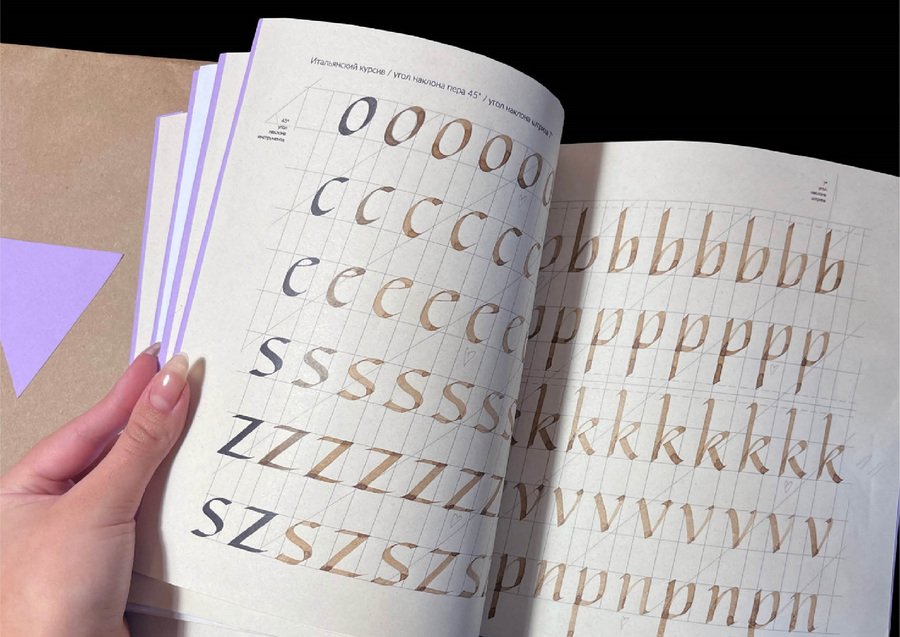 Итальянский курсив / угол наклона пера 45° / угол наклона штриха 7°
45°
угол
наклона
инструмента
o o o o o o
c c c c c c
e e e e e e
s s s s s s s
z z z z z z z
s z s z s z s
7°
угол
наклона
штриха
b b b b b b b b
p p p p p p p p
k k k k k k k k
v v v v v v v v
p n p n p n p n